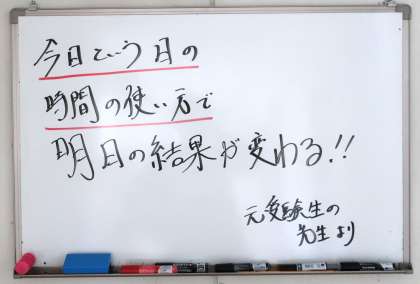 今日という日の
時間の使い方で
明日の結果が変わる!!
元受験生の
先生より